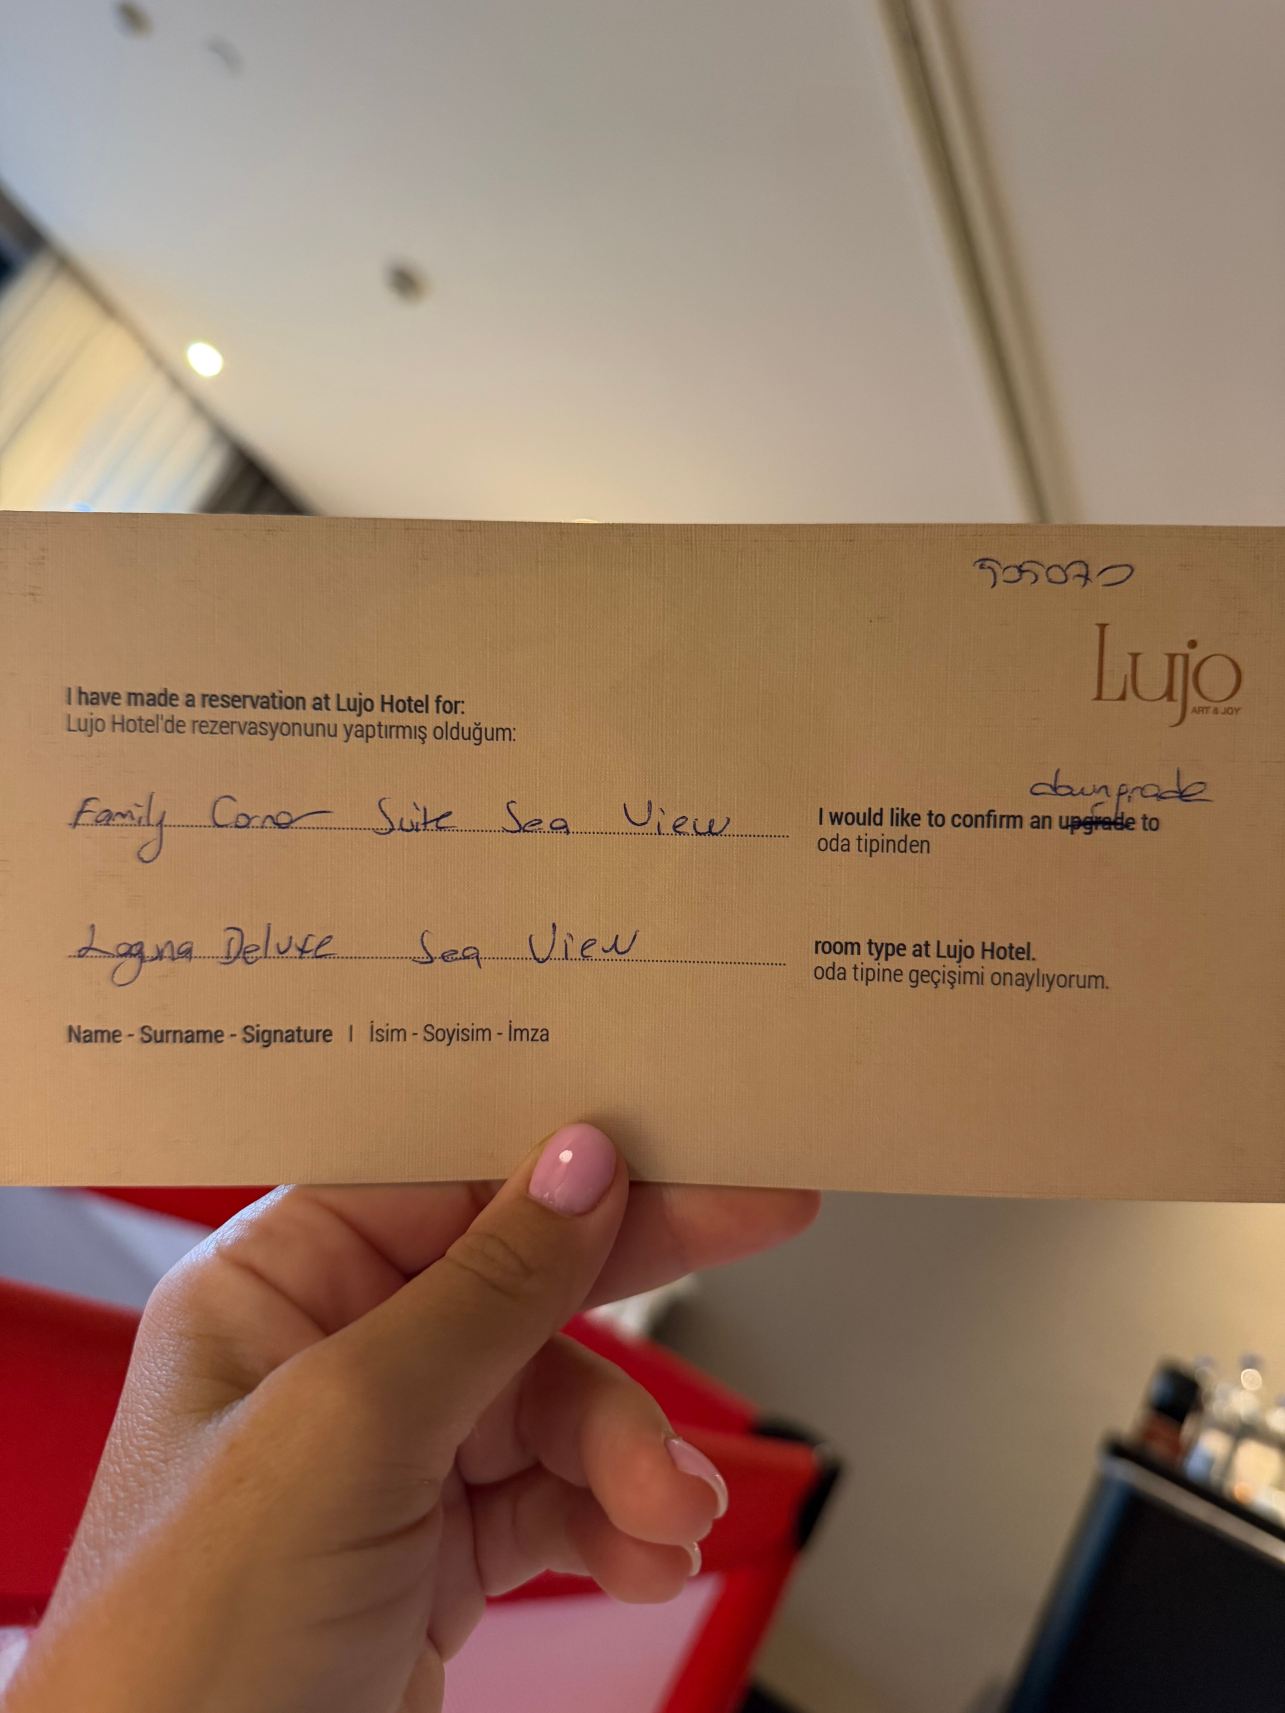 505070
Lujo
ART & JOY
I have made a reservation at Lujo Hotel for:
Lujo Hotel'de rezervasyonunu yaptırmış olduğum:
downgrade
Family Corner Suite Sea View I would like to confirm an upgrade to
oda tipinden
Laguna Deluxe Sea View room type at Lujo Hotel.
oda tipine geçişimi onaylıyorum.
Name - Surname - Signature | İsim - Soyisim - İmza